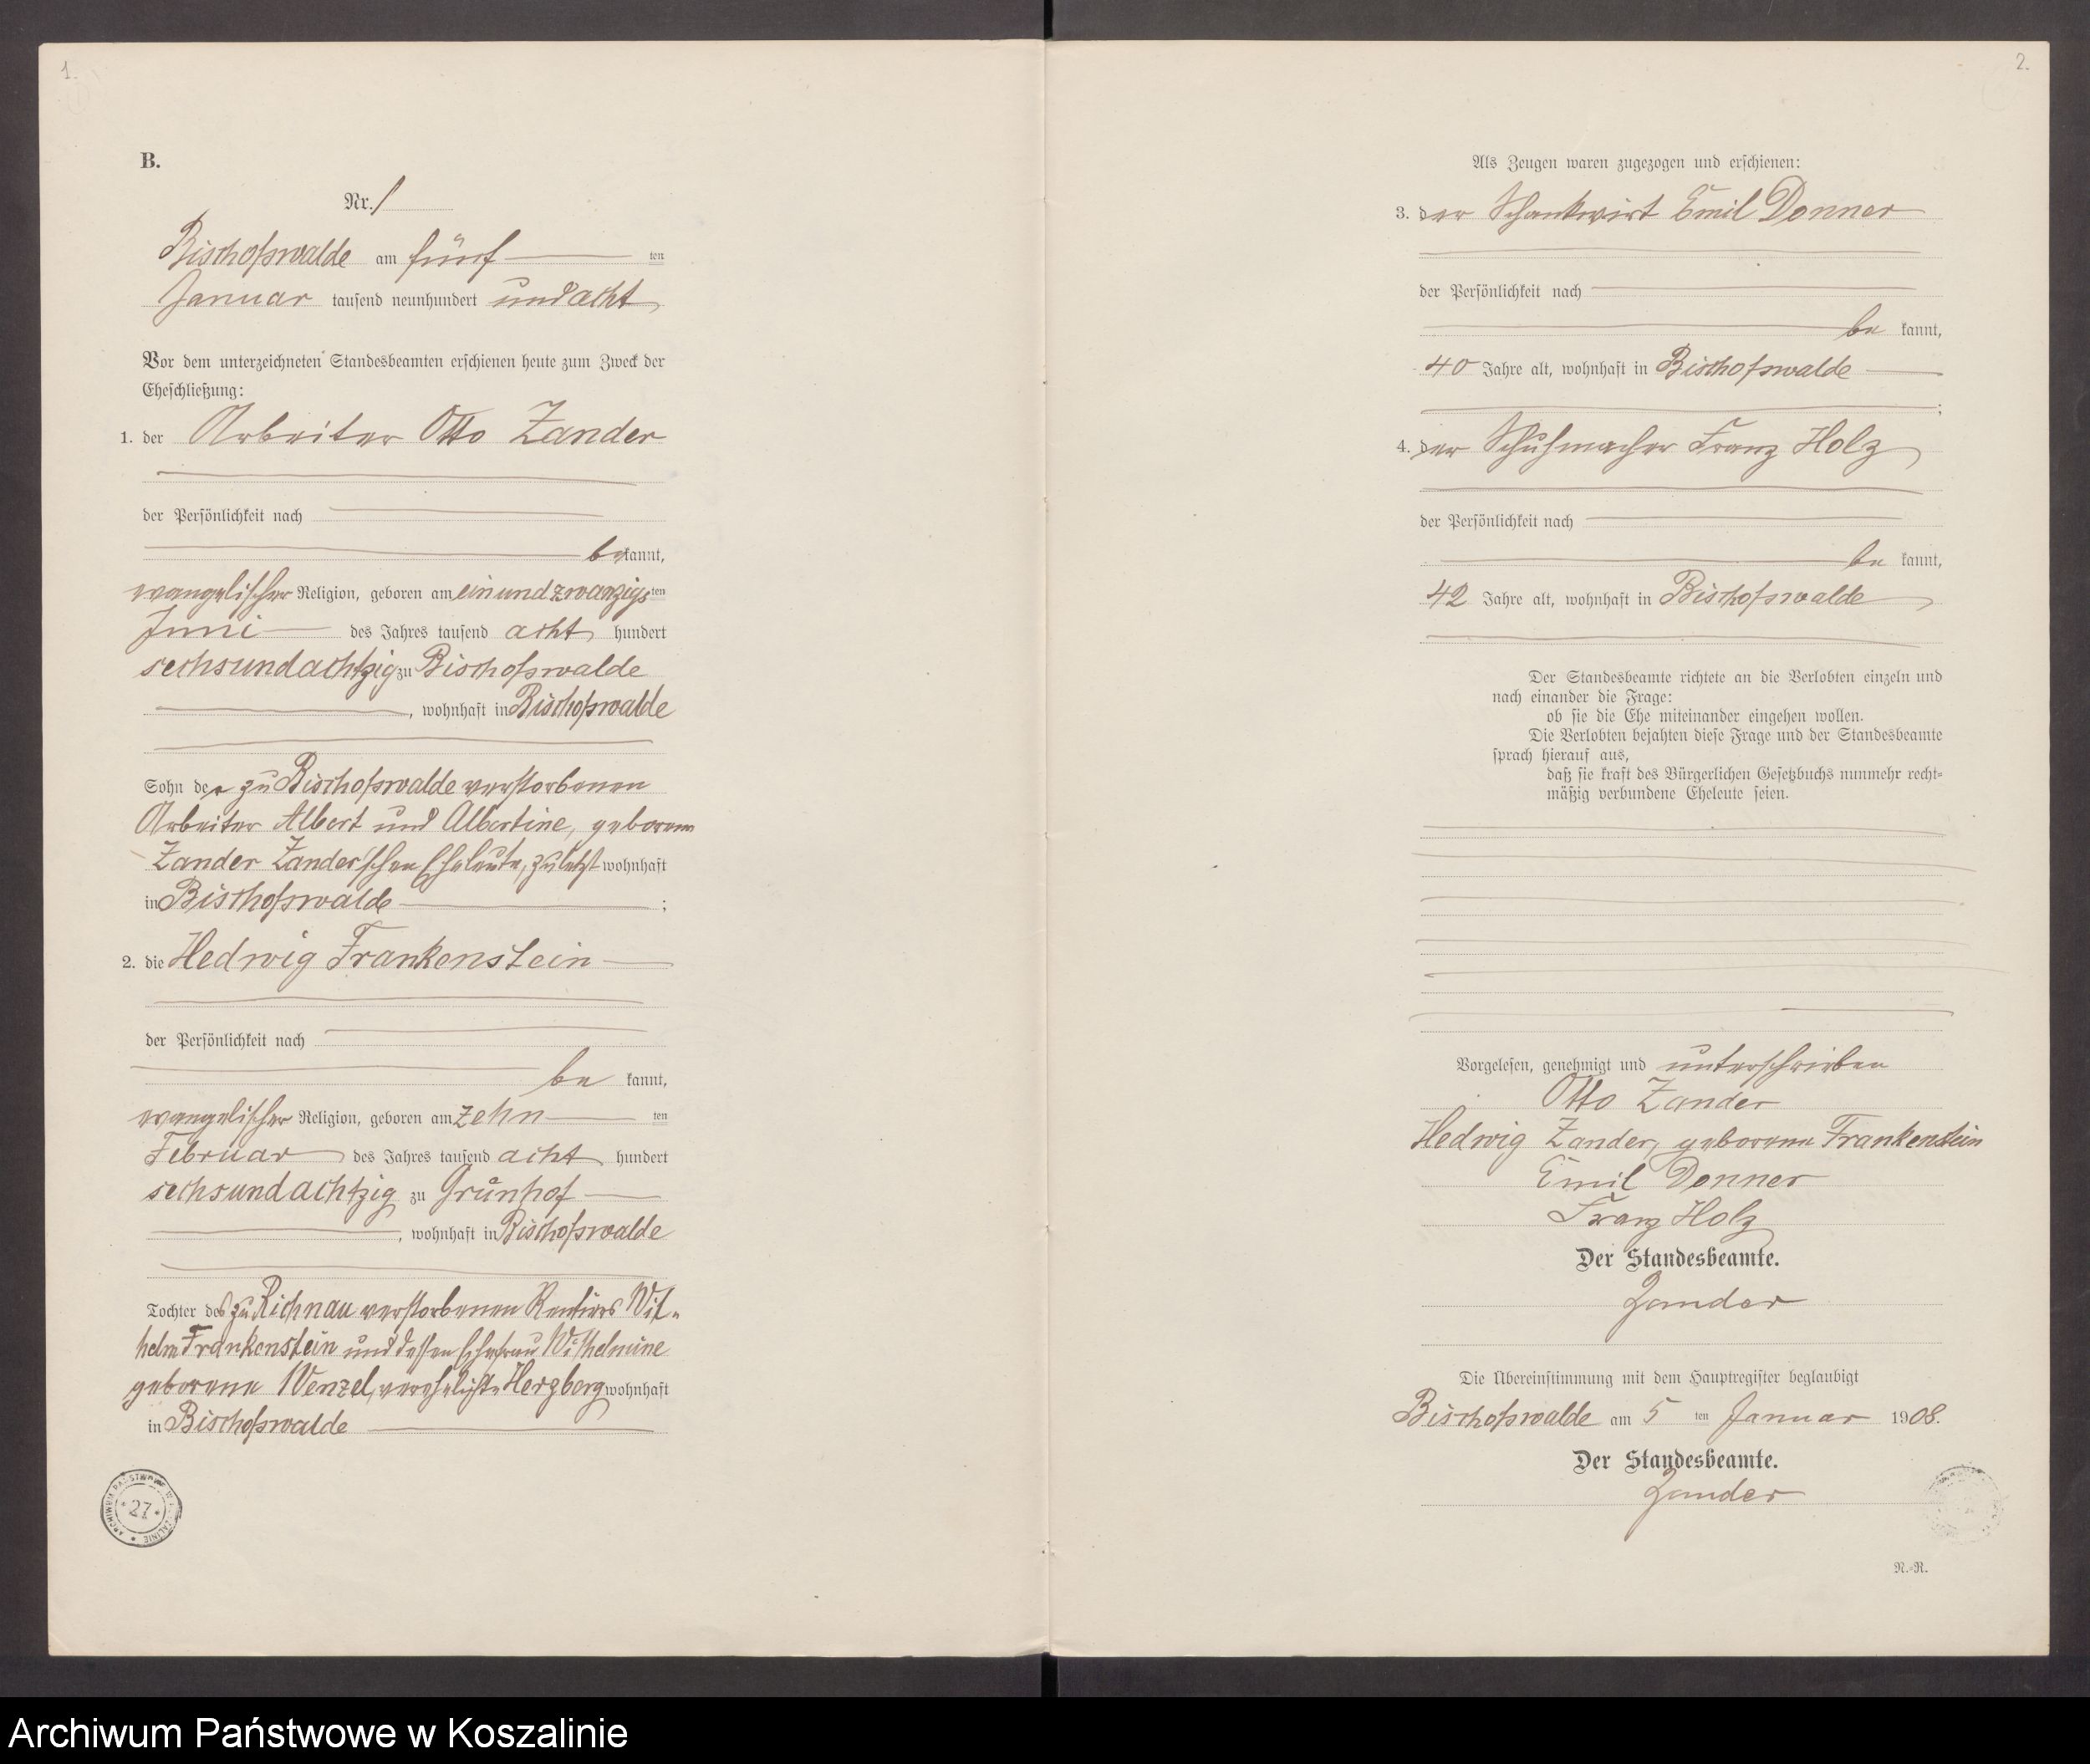 1.
B.
Nr. 1
Bischofswalde am fünf ten
Januar tausend neunhundert und acht
Vor dem unterzeichneten Standesbeamten erschienen heute zum Zweck der
Eheschließung:
1. der Arbeiter Otto Zander
der Persönlichkeit nach
be kannt,
evangelischer Religion, geboren am einundzwanzigsten
Juni des Jahres tausend acht hundert
sechsundachtzig zu Bischofswalde
, wohnhaft in Bischofswalde
Sohn der zu Bischofswalde verstorbenen
Arbeiter Albert und Albertine, geborene
Zander Zander'schen Eheleute, zuletzt wohnhaft
in Bischofswalde ;
2. die Hedwig Frankenstein
der Persönlichkeit nach
be kannt,
evangelischer Religion, geboren am zehn ten
Februar des Jahres tausend acht hundert
sechsundachtzig zu Grünhof
, wohnhaft in Bischofswalde
Tochter des zu Richnau verstorbenen Rentiers Wil-
helm Frankenstein und dessen Ehefrau Wilhelmine
geborene Wenzel, verehelichte Herzberg wohnhaft
in Bischofswalde
ARCHIWUM PAŃSTWOWE W KOSZALINIE * 27 *
2.
Als Zeugen waren zugezogen und erschienen:
3. der Schankwirt Emil Donner
der Persönlichkeit nach
be kannt,
40 Jahre alt, wohnhaft in Bischofswalde
;
4. der Schuhmacher Franz Holz
der Persönlichkeit nach
be kannt,
42 Jahre alt, wohnhaft in Bischofswalde
Der Standesbeamte richtete an die Verlobten einzeln und
nach einander die Frage:
ob sie die Ehe miteinander eingehen wollen.
Die Verlobten bejahten diese Frage und der Standesbeamte
sprach hierauf aus,
daß sie kraft des Bürgerlichen Gesetzbuchs nunmehr recht-
mäßig verbundene Eheleute seien.
Vorgelesen, genehmigt und unterschrieben
Otto Zander
Hedwig Zander, geborene Frankenstein
Emil Donner
Franz Holz
Der Standesbeamte.
Zander
Die Übereinstimmung mit dem Hauptregister beglaubigt
Bischofswalde am 5 ten Januar 1908.
Der Standesbeamte.
Zander
N.-R.
Archiwum Państwowe w Koszalinie